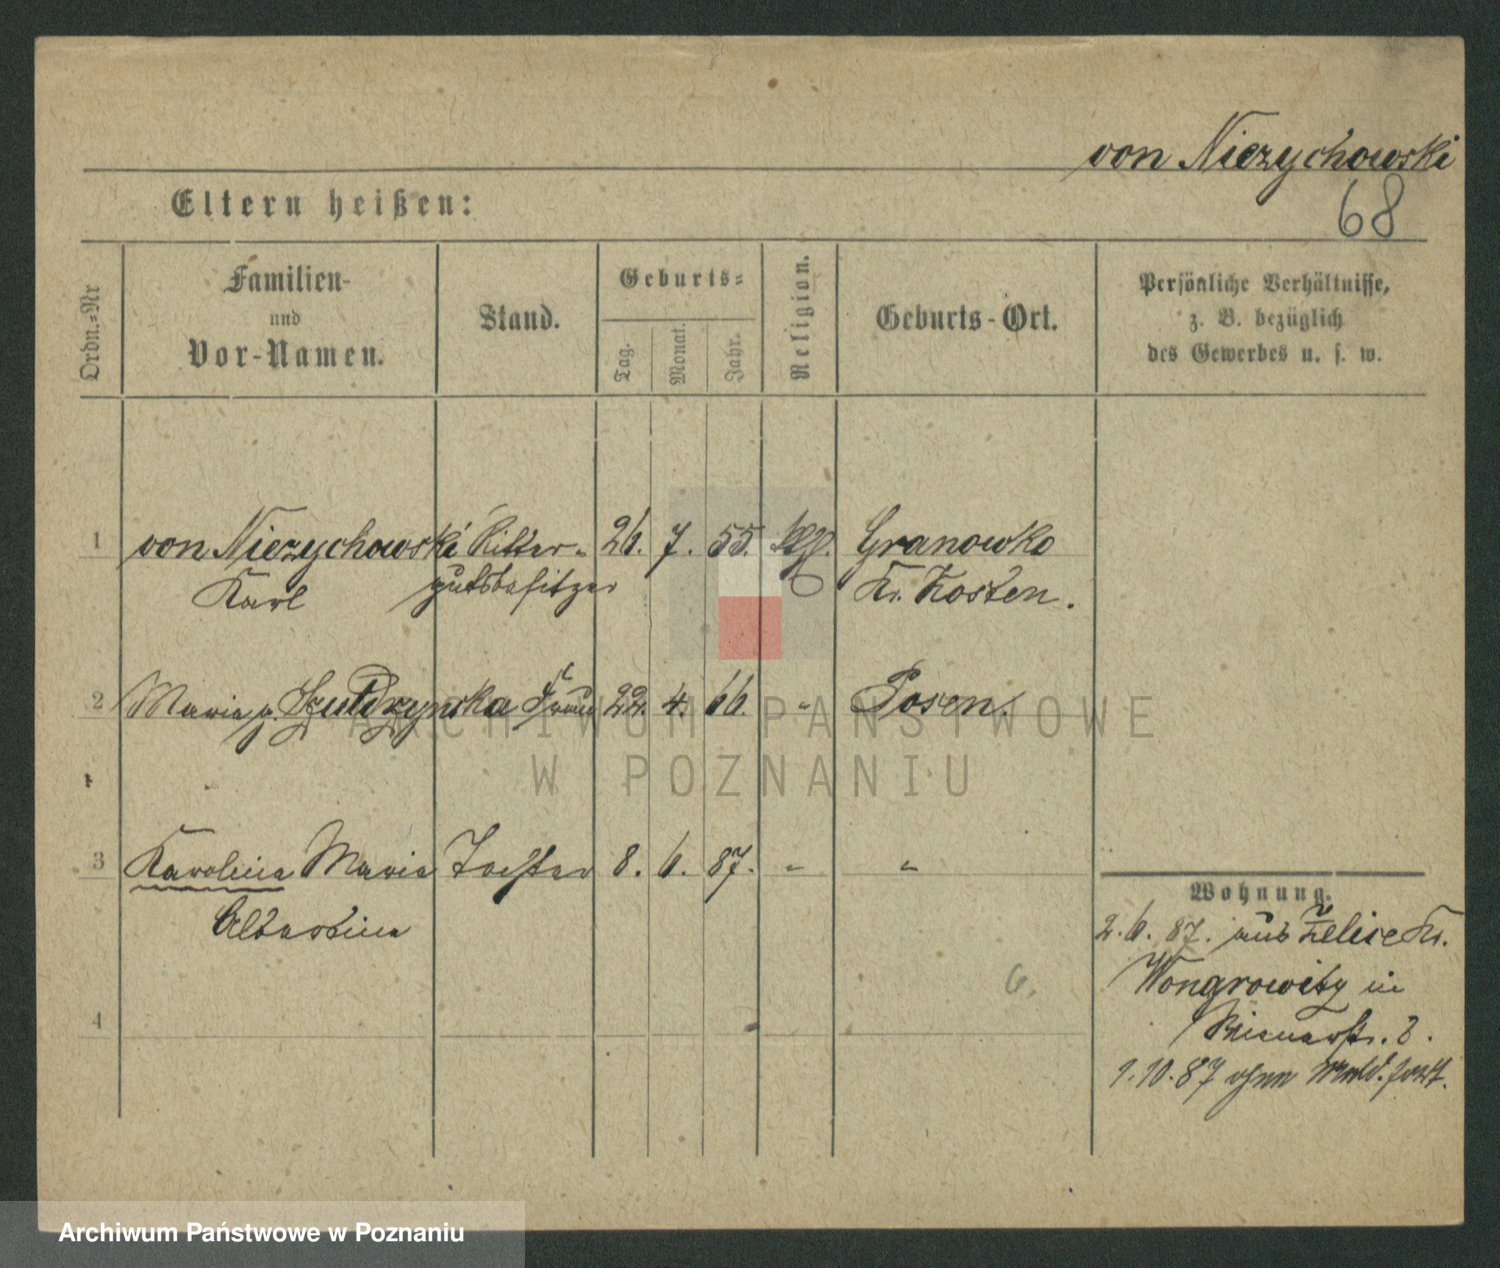 von Niezychowski
68
Eltern heißen:
Ordn.=Nr
Familien-
und
Vor-Namen.
Stand.
Geburts=
Tag.
Monat.
Jahr.
Religion.
Geburts-Ort.
Persönliche Verhältnisse,
z. B. bezüglich
des Gewerbes u. s. w.
1 von Niezychowski Ritter- 26. 7. 55. Granowko
Karl gutsbesitzer Kr. Kosten.
2 Maria g. Szuldrzynska Frau 22. 4. 66. " Posen.
3 Karolina Maria Tochter 8. 6. 87. " "
Albertine
4
Wohnung.
2. 6. 87. aus Zelice Kr.
Wongrowitz in
Bismarkstr. 2.
1.10.87 ohne Meld. fort.
6.
ARCHIWUM PAŃSTWOWE
W POZNANIU
Archiwum Państwowe w Poznaniu